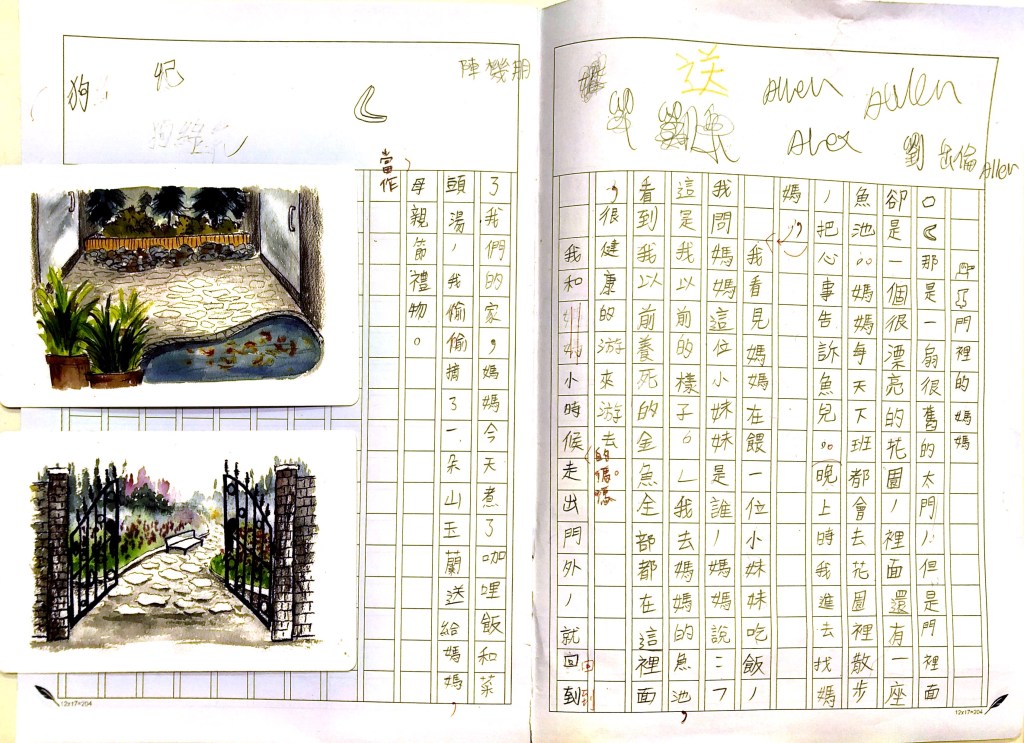 送
Allen
Allen
Alex
劉岳倫 Allen
門裡的媽媽
那是一扇很舊的太門，但是門裡面
卻是一個很漂亮的花園，裡面還有一座
魚池。媽媽每天下班都會去花園裡散步
，把心事告訴魚兒。晚上時我進去找媽
媽，
我看見媽媽在餵一位小妹妹吃飯，
我問媽媽這位小妹妹是誰，媽媽說：「
這是我以前的樣子。」我去媽媽的魚池，
看到我以前養死的金魚全部都在這裡面
，很健康的游來游去。
我和媽媽小時候的媽媽走出門外，就回到
12x17=204
狗
了我們的家，媽媽今天煮了咖哩飯和菜
頭湯，我偷偷摘了一朵山玉蘭送給媽媽，
當作母親節禮物。
12x17=204